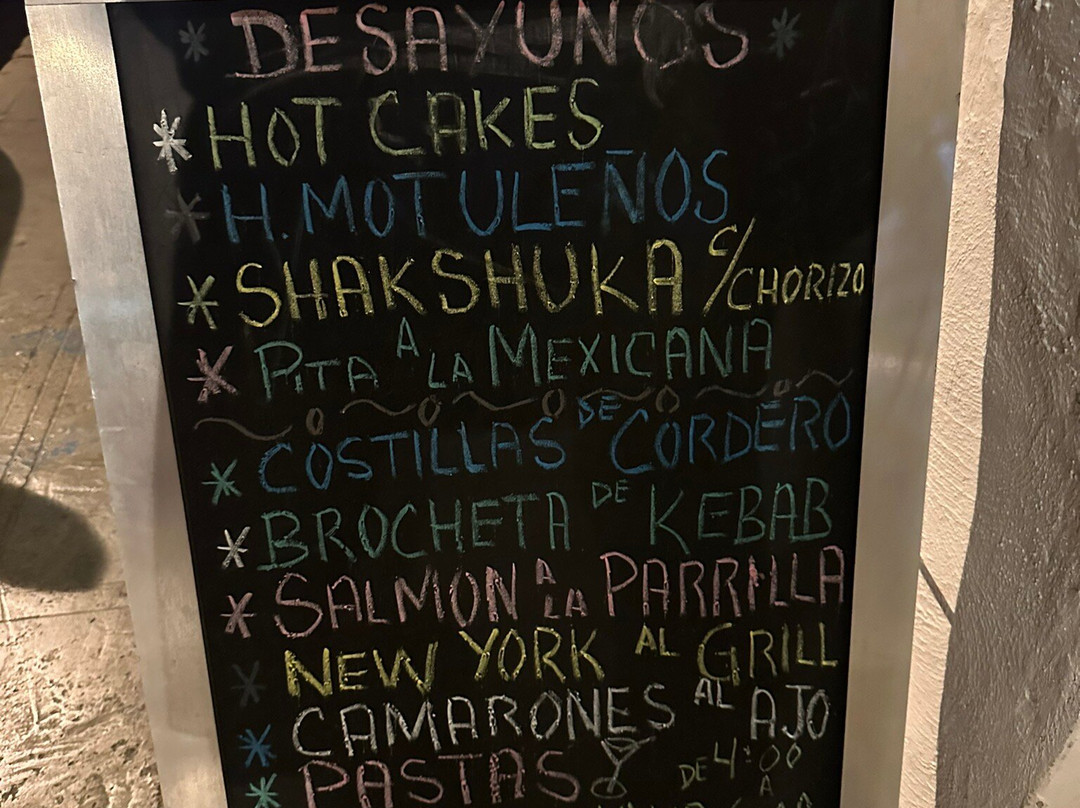 DESAYUNOS
* HOT CAKES
* H. MOTULEÑOS
* SHAKSHUKA C/CHORIZO
* PITA A LA MEXICANA
* COSTILLAS DE CORDERO
* BROCHETA DE KEBAB
* SALMON A LA PARRILLA
* NEW YORK AL GRILL
* CAMARONES AL AJO
* PASTAS
DE 4:00
A